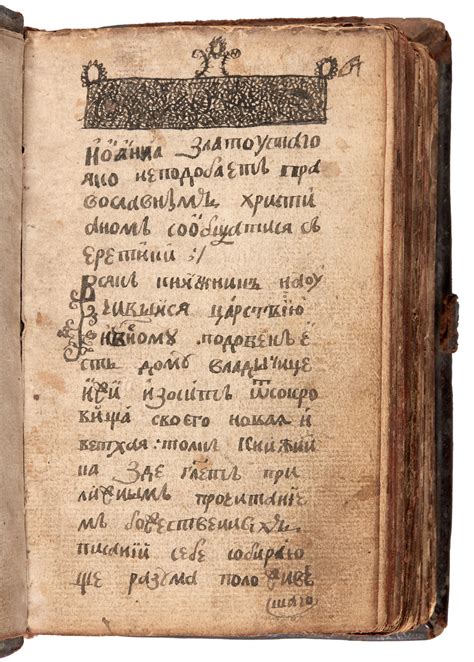 Іѡанна златоустаго
яко неподобаетъ пра
вославнымъ христи
аномъ сообщатися съ
еретики :/
Всякъ книжникъ нау
чивыйся царствїю
н҃бному подобенъ е
сть дому владыце
иже износитъ ѿ сокро
вища своего новая и
ветхая: толи книжни
ка зде гл҃етъ при
лѣжнымъ прочитанїе
мъ божественныхъ
писанїй себе собираю
ще разума полозныѣ
шаго